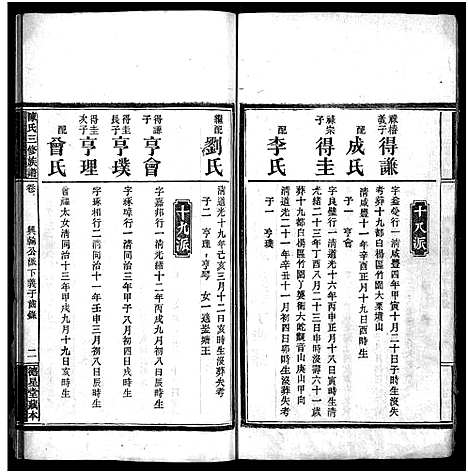 十八派
祿禧義子
得謙
字益受行一清咸豐四年甲寅十月二十日子時生沒失
葬十九都白楊區竹園大葉塘山
配
成氏
清咸豐十一年
五月十九日酉時生
子一 亨會
祿宗子
得圭
字良璋行一清道光十六年丙申六月初三日亥時生
光緒二十三年丁酉八月初八日未時沒壽六十一歲
葬十九都白楊區竹園丫葵衝大屹觀音山庚山甲向
配
李氏
清道光二十一年辛丑十一月初四日卯時生沒葬失考
子一 亨璞
繼配
劉氏
清道光十九年己亥三月十二日亥時生沒葬失考
子二 亨理 亨琴 女一 適婁塘王
十九派
得謙子
亨會
字嘉邦行一清光緒十二年丙戌九月初八日辰時生
得圭長子
亨璞
字琢璋行一清同治十一年壬申三月初八日辰時生
得圭次子
亨理
字琢行二清光緒年甲九月初一日亥時生
配
曾氏
曾福太女清同治十三年甲戌九月十九日亥時生
陳氏三修族譜
卷
興翰公派下義子齒錄
二
德星堂藏本